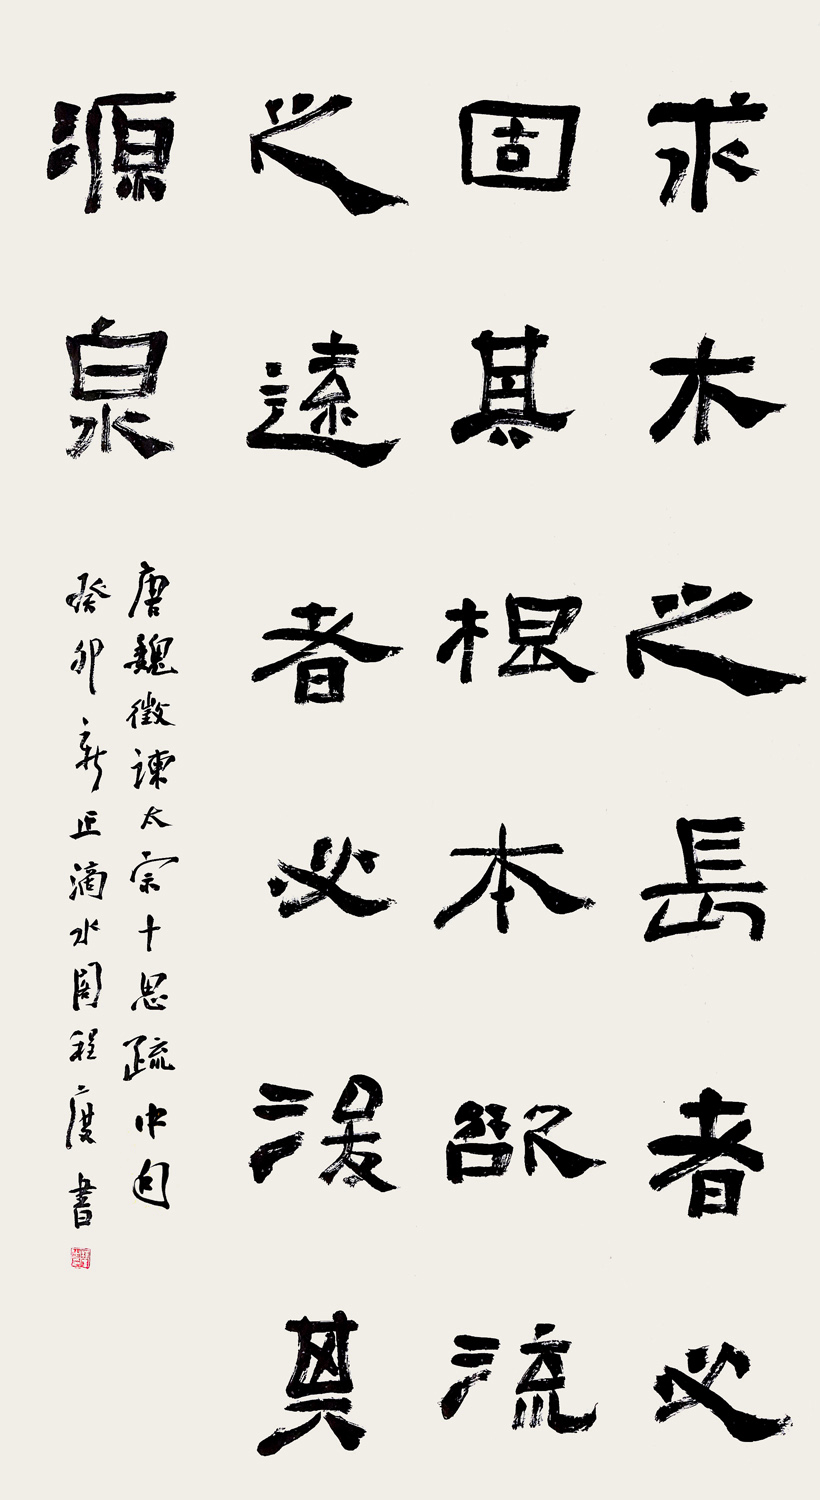 求木之長者必
固其根本欲流
之遠者必浚其
源泉
唐魏徵諫太宗十思疏中句
癸卯新正滴水閣程度書